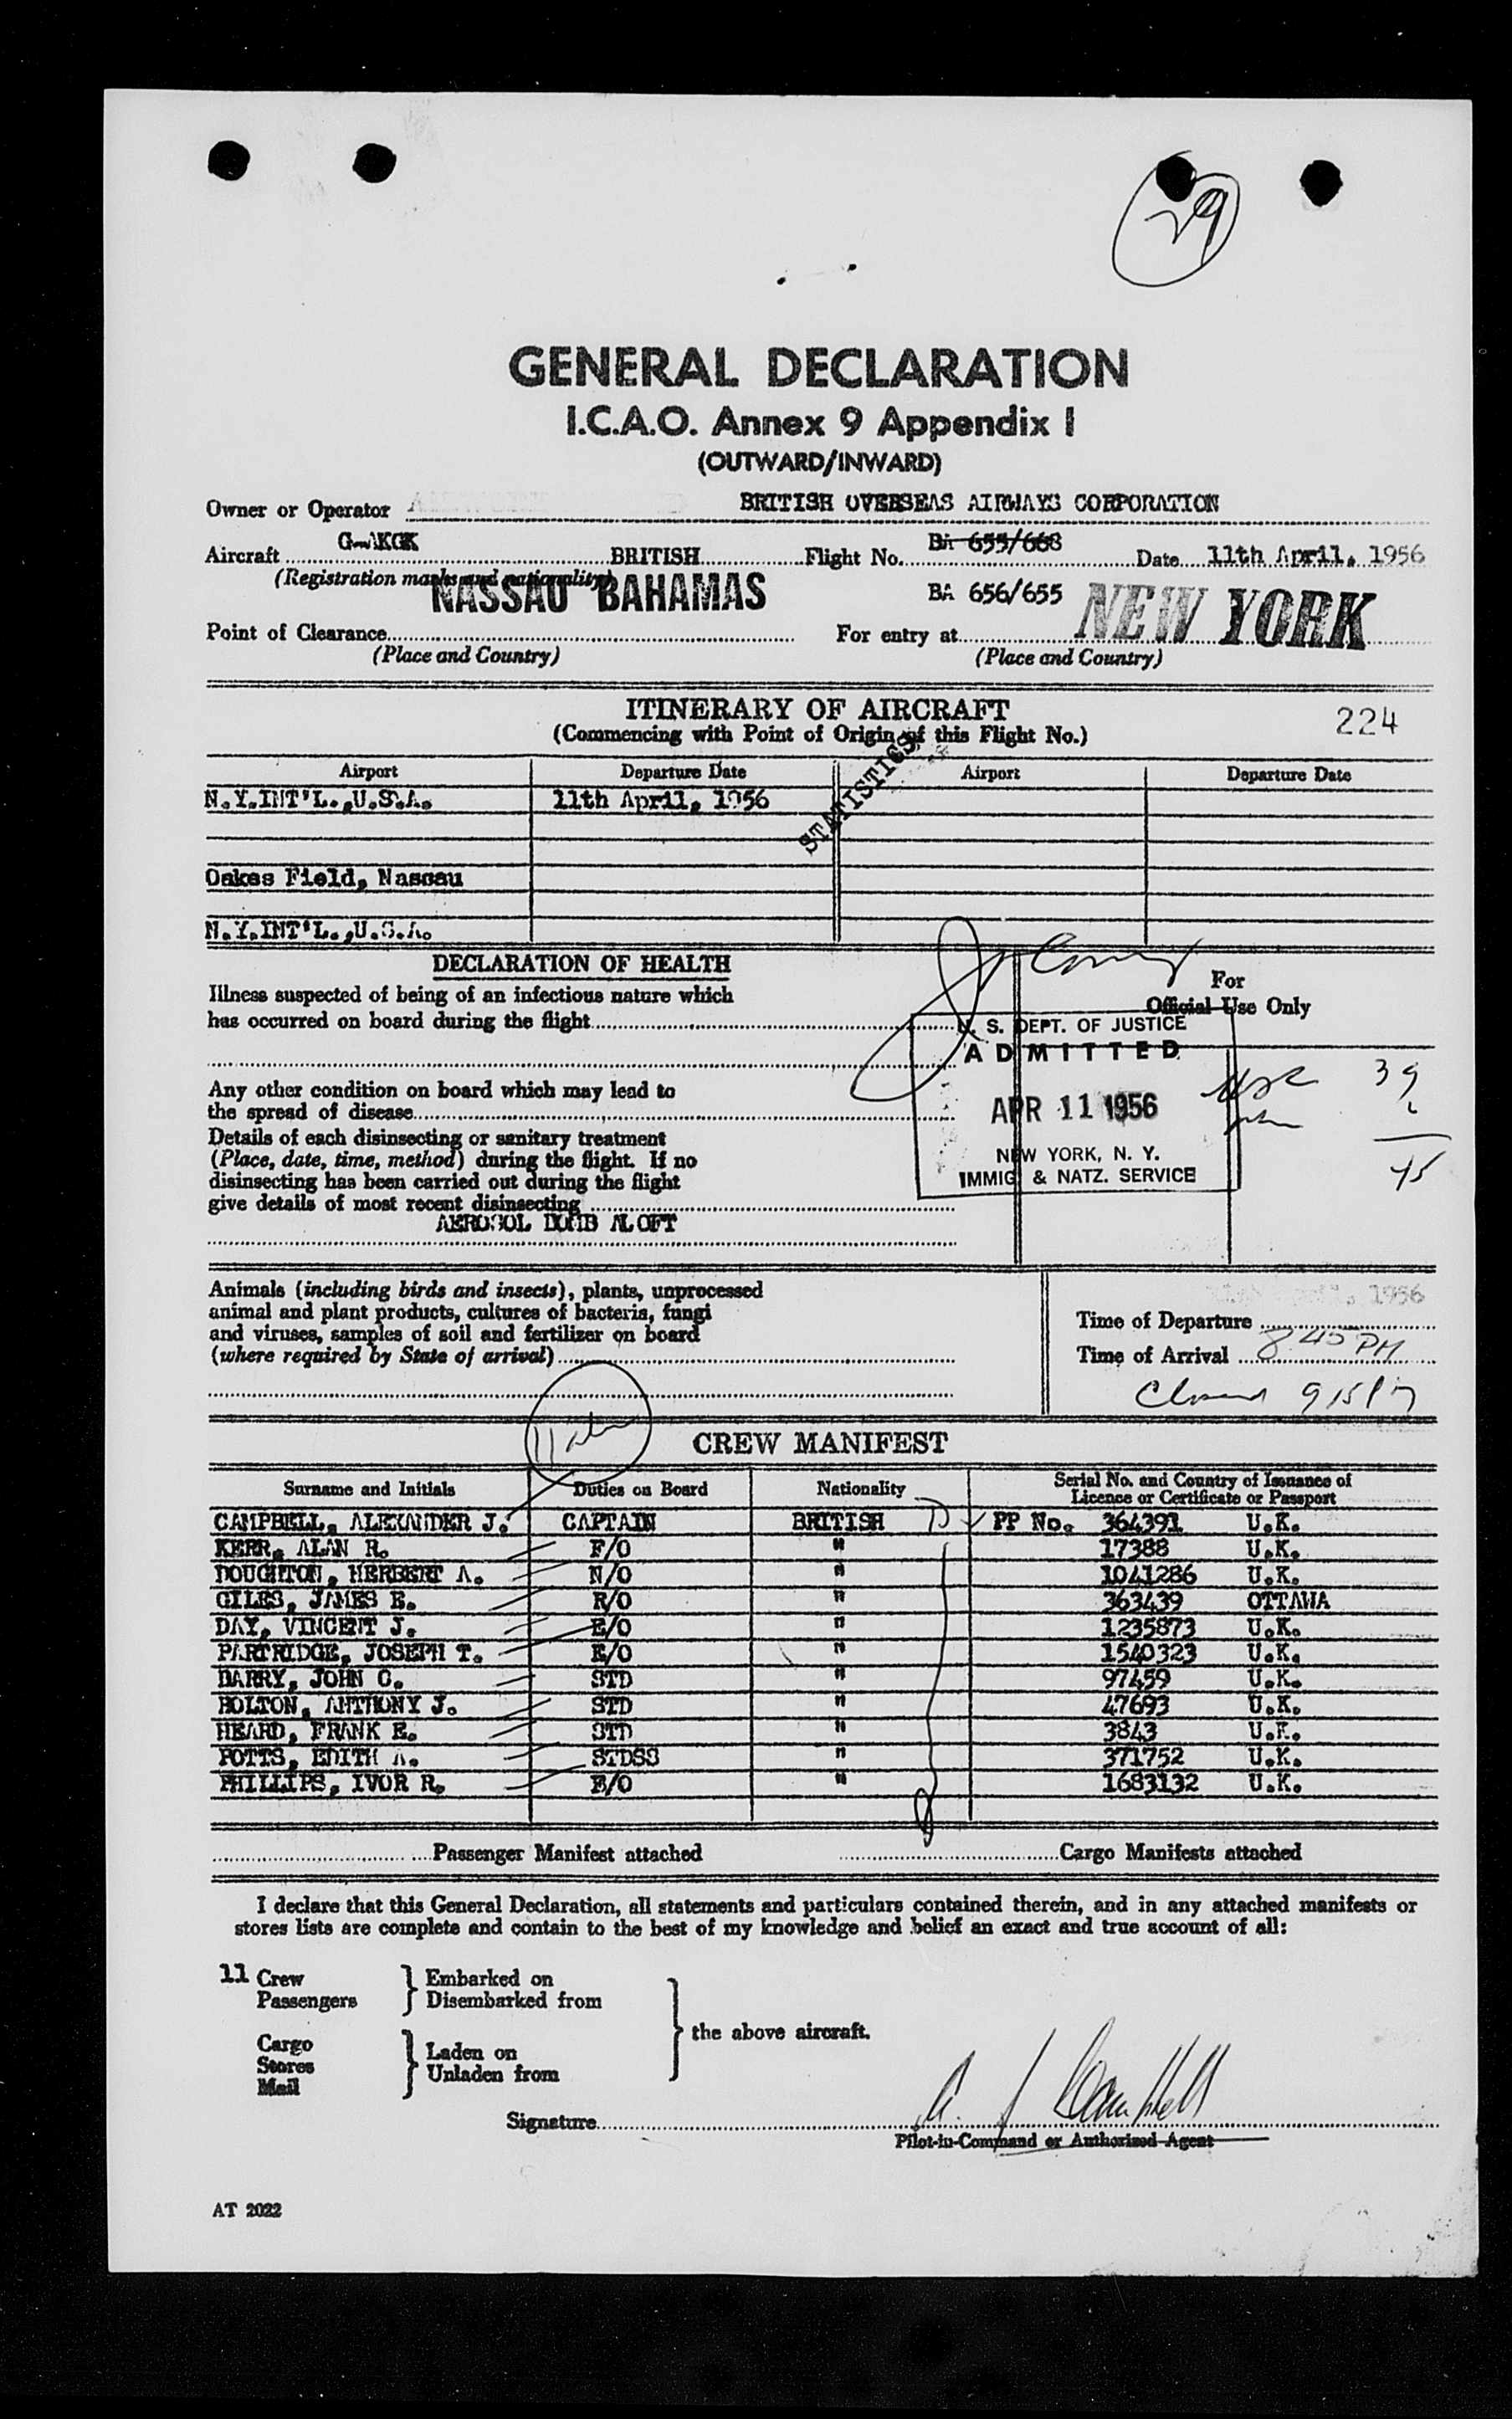 29
GENERAL DECLARATION
I.C.A.O. Annex 9 Appendix I
(OUTWARD/INWARD)
Owner or Operator BRITISH OVERSEAS AIRWAYS CORPORATION
Aircraft G-AKGK BRITISH Flight No. BA 655/668 Date 11th April, 1956
(Registration marks and nationality)
NASSAU BAHAMAS BA 656/655 NEW YORK
Point of Clearance For entry at
(Place and Country) (Place and Country)
ITINERARY OF AIRCRAFT
(Commencing with Point of Origin of this Flight No.) 224
STATISTICS
Airport Departure Date Airport Departure Date
N.Y.INT'L.,U.S.A. 11th April, 1956
Oakes Field, Nassau
N.Y.INT'L.,U.S.A.
DECLARATION OF HEALTH
For
Official Use Only
Illness suspected of being of an infectious nature which
has occurred on board during the flight
U. S. DEPT. OF JUSTICE
ADMITTED
APR 11 1956
NEW YORK, N. Y.
IMMIG. & NATZ. SERVICE
39
45
Any other condition on board which may lead to
the spread of disease
Details of each disinsecting or sanitary treatment
(Place, date, time, method) during the flight. If no
disinsecting has been carried out during the flight
give details of most recent disinsecting
AEROSOL BOMB ALOFT
Animals (including birds and insects), plants, unprocessed
animal and plant products, cultures of bacteria, fungi
and viruses, samples of soil and fertilizer on board
(where required by State of arrival)
1956
Time of Departure
Time of Arrival 8 40 PM
Closed 915 PM
CREW MANIFEST
Surname and Initials Duties on Board Nationality Serial No. and Country of Issuance of
Licence or Certificate or Passport
CAMPBELL, ALEXANDER J. CAPTAIN BRITISH PP No. 364391 U.K.
KERR, ALAN R. F/O " 17388 U.K.
DOUGHTON, HERBERT A. N/O " 1041286 U.K.
GILES, JAMES E. R/O " 363439 OTTAWA
DAY, VINCENT J. E/O " 1235873 U.K.
PARTRIDGE, JOSEPH T. E/O " 1540323 U.K.
BARRY, JOHN C. STD " 97459 U.K.
BOLTON, ANTHONY J. STD " 47693 U.K.
HEARD, FRANK E. STD " 3843 U.K.
POTTS, EDITH A. STDSS " 371752 U.K.
PHILLIPS, IVOR R. E/O " 1683132 U.K.
Passenger Manifest attached Cargo Manifests attached
I declare that this General Declaration, all statements and particulars contained therein, and in any attached manifests or
stores lists are complete and contain to the best of my knowledge and belief an exact and true account of all:
11 Crew Embarked on
Passengers Disembarked from
the above aircraft.
Cargo Laden on
Stores Unladen from
Mail
Signature A. J. Campbell
Pilot-in-Command or Authorized Agent
AT 2022